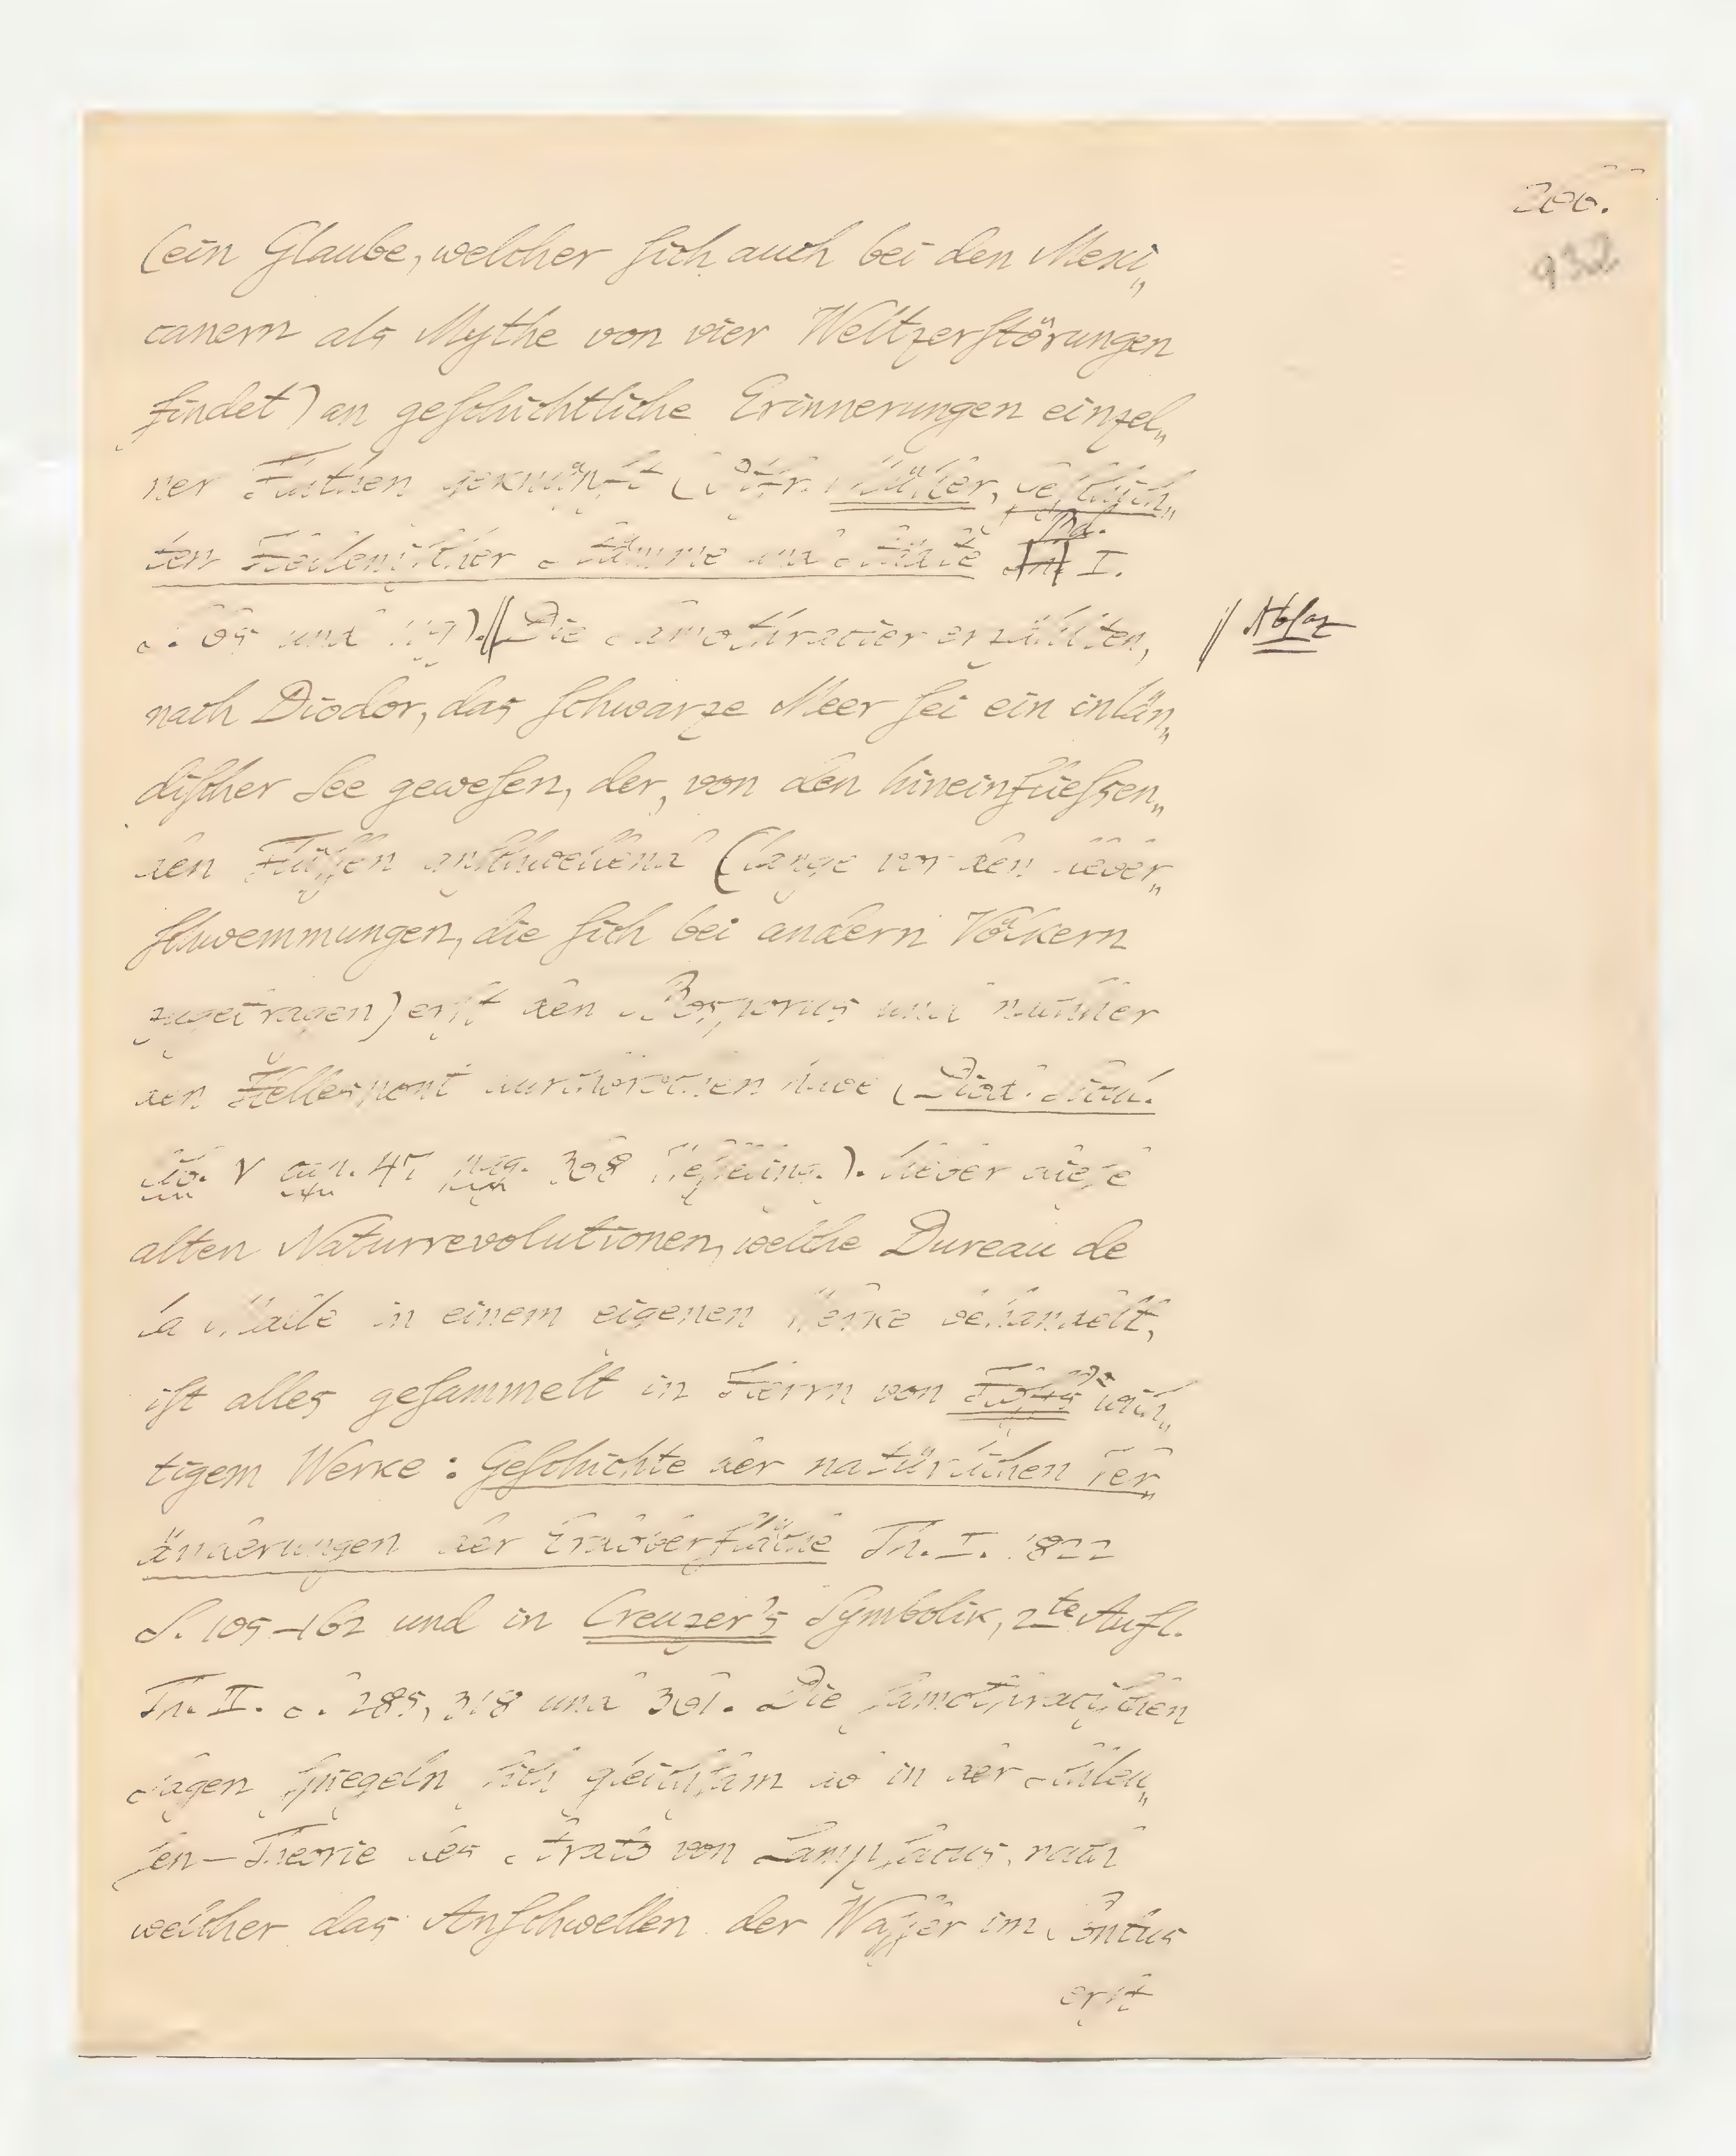 206.
932
(ein Glaube, welcher ſich auch bei den Mexi„
canern als Mythe von vier Weltzerſtörungen
findet) an geſchichtliche Erinnerungen einzel„
ner Fluthen geknüpft (Otfr. Müller, Geſchich„
ten Helleniſcher Stämme und Städte Bd. I.
S. 65 und 119).// Die Samothracier erzählten,
// Abſaz
nach Diodor, das ſchwarze Meer ſei ein inlän„
diſcher See geweſen, der, von den hineinflieſsen„
den Flüſſen anſchwellend (lange vor den Ueber„
ſchwemmungen, die ſich bei andern Völkern
zugetragen) erſt den Bosporus und nachher
den Hellespont durchbrochen habe (Diod. Sicul.
lib. V cap. 47 pag. 368 Weſſeling.). Ueber dieſe
alten Naturrevolutionen, welche Dureau de
la Malle in einem eigenen Werke behandelt,
iſt alles geſammelt in Herrn von Hoff's wich„
tigem Werke: Geſchichte der natürlichen Ver„
änderungen der Erdoberfläche Th. I. 1822
S. 105–162 und in Creuzer's Symbolik, 2te Aufl.
Th. II. S. 285, 318 und 361. Die ſamothraciſchen
Sagen ſpiegeln ſich gleichſam ab in der Schleu„
ſen–Theorie des Strato von Lampſacus, nach
welcher das Anſchwellen der Waſſer im Pontus
erſt